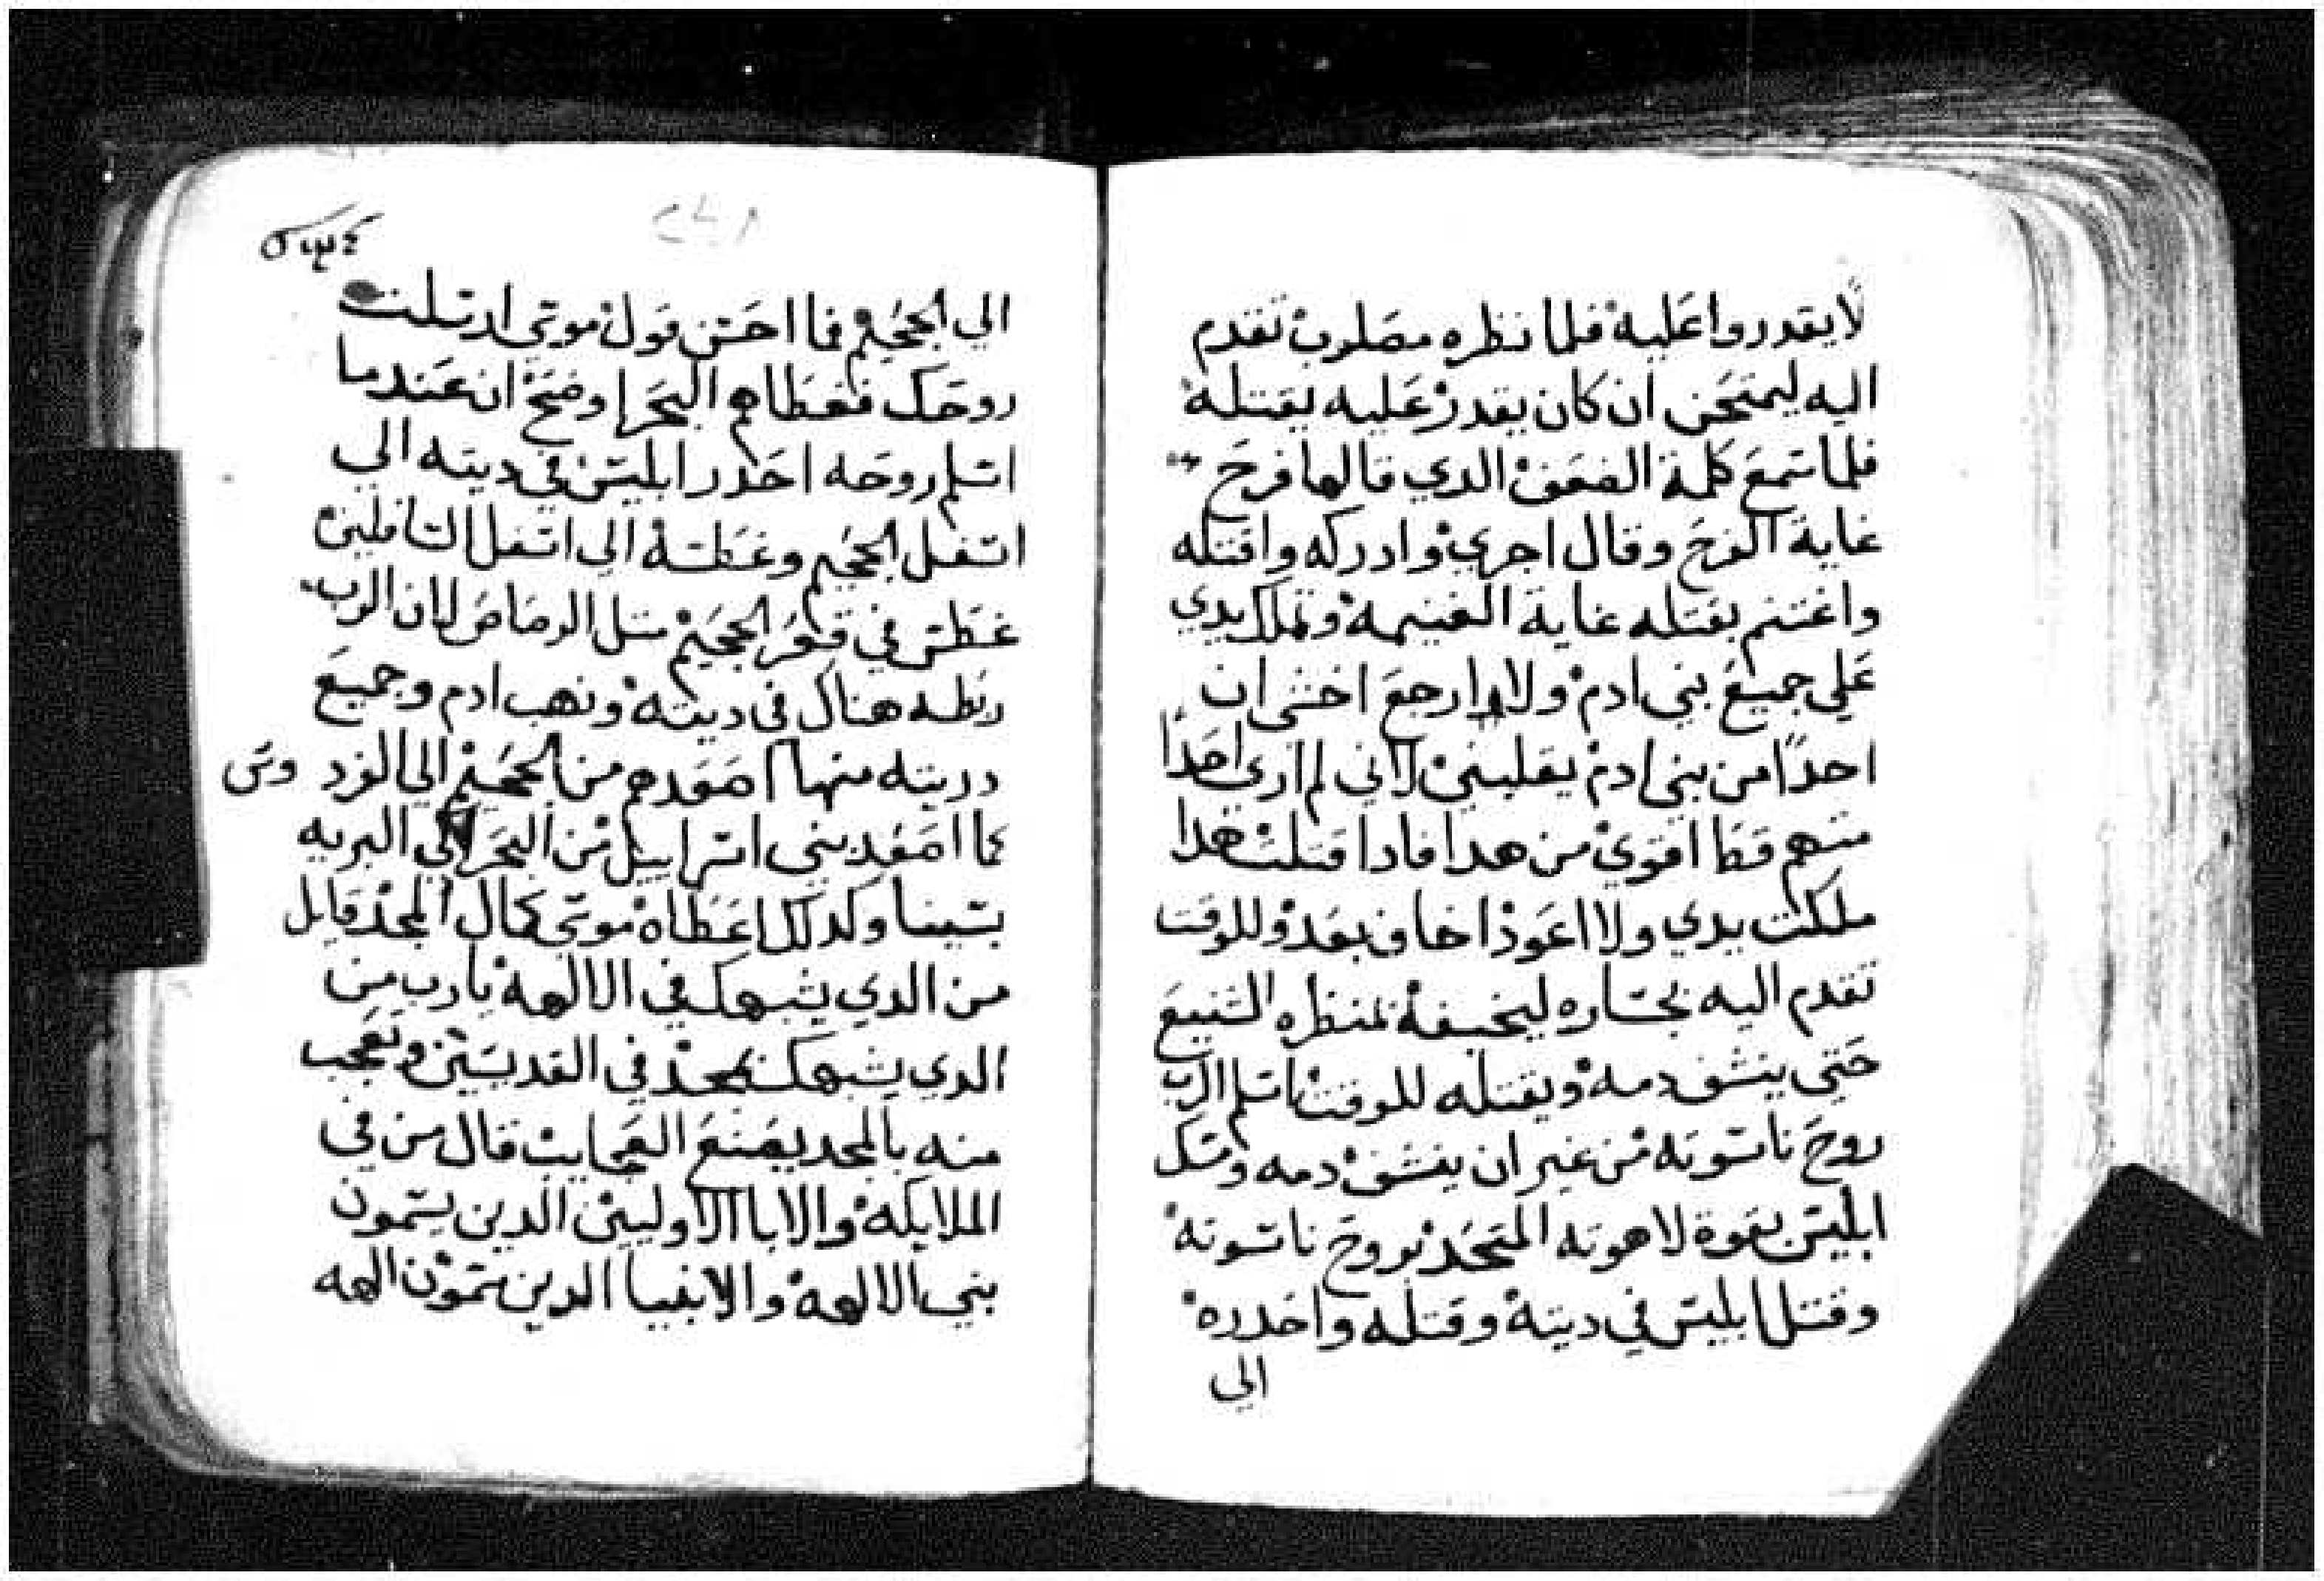 لا يقدروا عليه فلما نظره مصلوب تقدم
اليه ليمتحن ان كان يقدر عليه يقتله
فلما سمع كلمة الضعف الدي قالها فرح
غاية الفرح وقال اجري وادركه واقتله
واغتنم بقتله غاية الغنيمة وتملك يدي
علي جميع بني ادم ولا ارجع اخشي ان
احدًا من بني ادم يغلبني لاني لم اري احدًا
منهم قط اقوي من هدا فادا قتلت هدا
ملكت يدي ولا اعود اخاف بعد وللوقت
تقدم اليه بجساره ليخيفه بمنظره الشنيع
حتي ينشف دمه ويقتله للوقت اسلم الرب
روح ناسوته من غير ان ينشف دمه ومسك
ابليس بقوة لاهوته المتحد بروح ناسوته
وقتل ابليس في ديته وقتله واحدره
الي
الي الجحيم فما احسن قول موسي ارسلت
روحك فغطاهم البحر اوضح ان عندما
اسلم روحه احدر ابليس في ديته الي
اسفل الجحيم وغطته الي اسفل السافلين
غطس في قعر الجحيم متل الرصاص لان الرب
ربطه هناك في ديته ونهب ادم وجميع
دريته منها اصعدهم من الجحيم الي الفردوس
كما اصعد بني اسراييل من البحر الي البريه
بسينا وكدلك اعطاه موسي كمال المجد قايل
من الدي يشبهك في الالهة يارب من
الدي يشبهك في القديسين وتعجب
منه بالمجد يصنع العجايب قال من في
الملايكة والابا الاوليين الدين يسمون
بني الالهة والانبيا الدين سمون الهه